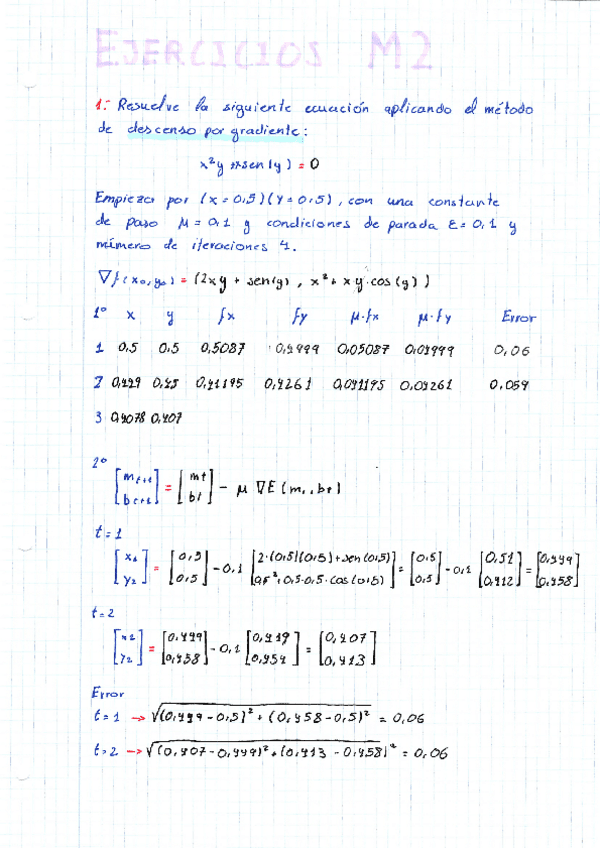 EJERCICIOS M2
1: Resuelve la siguiente ecuación aplicando el método
de descenso por gradiente:
x²y + xsen(y) = 0
Empieza por (x=0,5)(y=0,5), con una constante
de paso μ=0,1 y condiciones de parada ε=0,1 y
número de iteraciones 4.
∇f(x₀,y₀) = (2xy + sen(y), x² + xy·cos(y))
1º x y fx fy μ·fx μ·fy Error
1 0,5 0,5 0,5087 0,4999 0,05087 0,04999 0,06
2 0,449 0,45 0,41195 0,4261 0,041195 0,04261 0,059
3 0,4078 0,407
2º [m t+1 / b t+1] = [mt / bt] - μ ∇E(mt, bt)
t=1
[x₁ / y₂] = [0,5 / 0,5] - 0,1 [2·(0,5)(0,5)+sen(0,5) / 0,5²+0,5·0,5·cos(0,5)] = [0,5 / 0,5] - 0,1 [0,51 / 0,412] = [0,449 / 0,458]
t=2
[x2 / y₂] = [0,449 / 0,458] - 0,1 [0,419 / 0,454] = [0,407 / 0,413]
Error
t=1 → √(0,449-0,5)² + (0,458-0,5)² = 0,06
t=2 → √(0,407-0,449)² + (0,413-0,458)² = 0,06